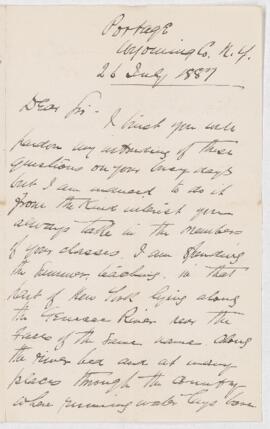 Portage
Wyoming Co. N.Y.
26 July 1887
Dear Sir - I trust you will
pardon my intruding of these
questions on your busy days
but I am induced to do it
from the kind interest you
always take in the members
of your classes. I am spending
the summer, teaching, in that
part of New York lying along
the Genesee River near the
Falls of the same name. Along
the river bed and at many
places through the country
where running water lays bare